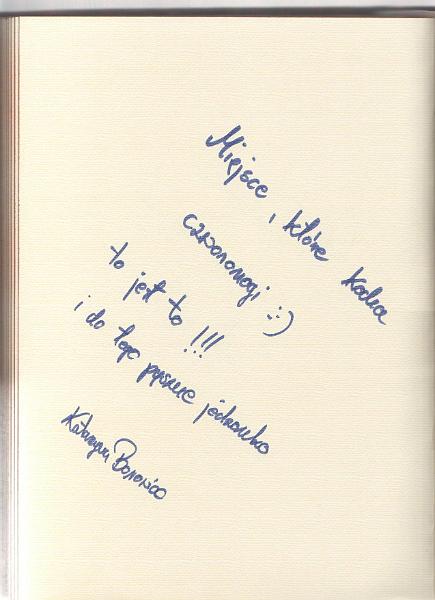 Miejsce, które kocha
czworonogi :)
to jest to !!!
i do tego pyszne jedzonko
Katarzyna